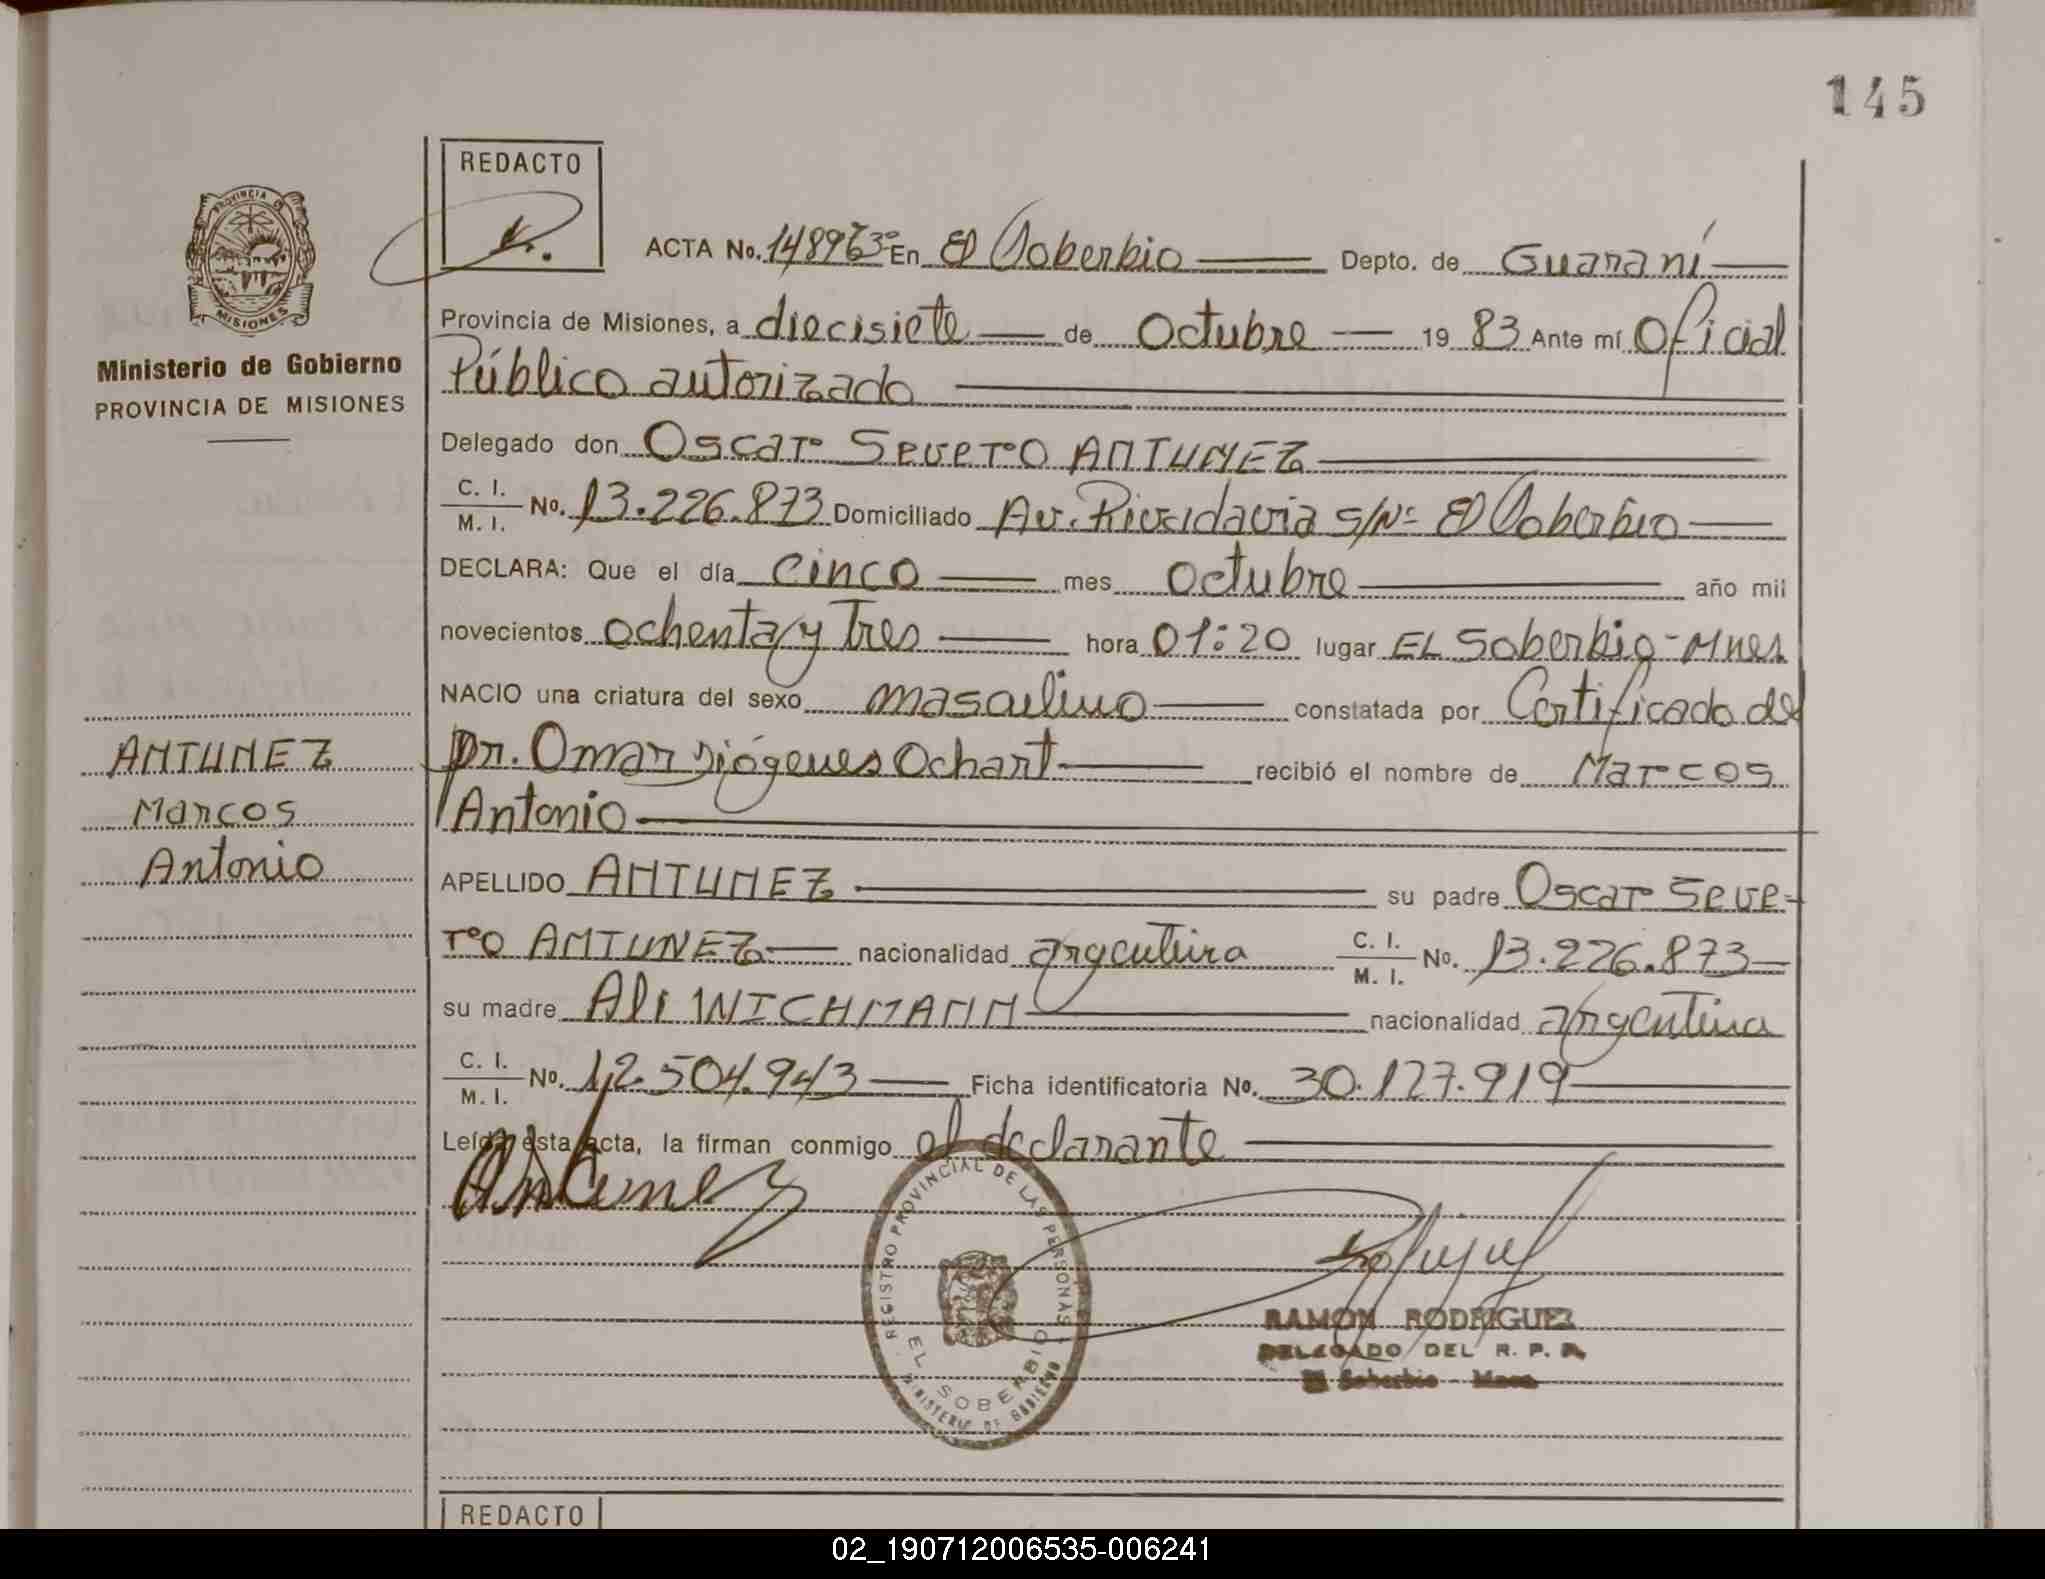 145
REDACTO
PROVINCIA DE
MISIONES
Ministerio de Gobierno
PROVINCIA DE MISIONES
ACTA No. 148963º En El Soberbio Depto. de Guaraní
Provincia de Misiones, a diecisiete de Octubre 19 83 Ante mí Oficial
Público autorizado
Delegado don Oscar Severo ANTUNEZ
C. I. / M. I. No. 13.226.873 Domiciliado Av. Rivadavia s/Nº El Soberbio
DECLARA: Que el día cinco mes octubre año mil
novecientos ochenta y Tres hora 01:20 lugar EL Soberbio-Mnes
NACIO una criatura del sexo masculino constatada por Certificado del
Dr. Omar Diógenes Ochart recibió el nombre de Marcos
Antonio
ANTUNEZ
Marcos
Antonio
APELLIDO ANTUNEZ su padre Oscar Seve-
ro ANTUNEZ nacionalidad argentina C. I. / M. I. No. 13.226.873
su madre Ali WICHMANN nacionalidad argentina
C. I. / M. I. No. 12.504.943 Ficha identificatoria No. 30.127.919
Leída esta acta, la firman conmigo el declarante
Antunez
REGISTRO PROVINCIAL DE LAS PERSONAS
EL SOBERBIO
MINISTERIO DE GOBIERNO
RAMON RODRIGUEZ
DELEGADO DEL R. P. P.
El Soberbio - Mnes
REDACTO
02_190712006535-006241